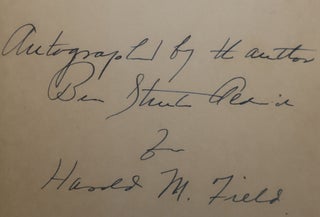 Autographed by the author
Ben Struthe
for
Harold M. Field